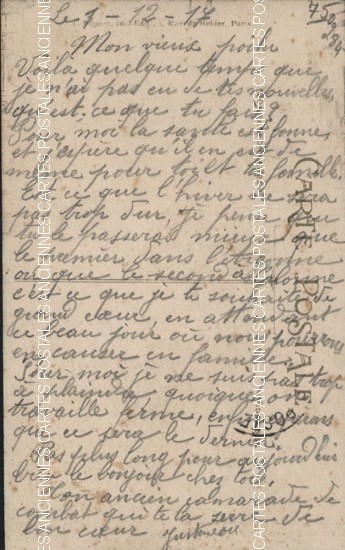 Le 1-12-17
Mon vieux poilu
Voilà quelque temps que
je n'ai pas eu de tes nouvelles,
qu'est-ce que tu fais?
Pour moi la santé est bonne
et j'espère qu'il en est de
même pour toi et ta famille.
Est-ce que l'hiver ne sera
pas trop dur, je pense que
tu le passeras mieux que
le premier dans
ou que le second à
c'est ce que je te souhaite de
grand cœur, en attendant
ce beau jour où nous pourrons
en causer en famille.
Pour moi je ne suis pas trop
à plaindre, quoique on
travaille ferme, en espérant
que ce sera le dernier.
Pas plus long pour aujourd'hui
bien le bonjour chez toi.
Ton ancien camarade de
combat qui te la serre de
bon cœur
CARTE POSTALE
ANCIENNES CARTES POSTALES ANCIENNES CARTES POSTALES ANCIENNES